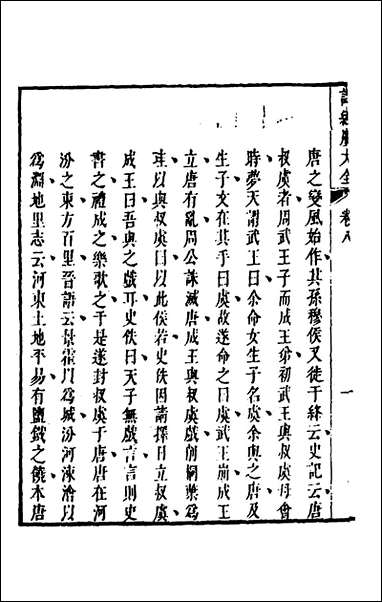 唐之變風始作其孫穆侯又徙于絳云史記云唐
叔虞者周武王子而成王弟初武王與叔虞母會
時夢天謂武王曰余命女生子名虞余與之唐及
生子文在其手曰虞故遂命之曰虞武王崩成王
立唐有亂周公誅滅唐成王與叔虞戲削桐葉爲
珪以與叔虞曰以此侯若史佚因請擇日立叔虞
成王曰吾與之戲耳史佚曰天子無戲言言則史
書之禮成之樂歌之于是遂封叔虞于唐唐在河
汾之東方百里晉語云景霍以爲城汾河涑澮以
爲淵地里志云河東土地平易有鹽鐵之饒本唐
卷八
一